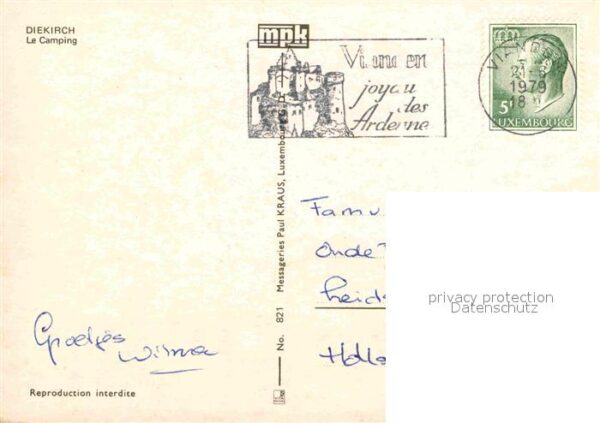 DIEKIRCH
Le Camping
mpk
Vianden
joyau
des
Ardenne
VIANDEN
21-8
1979
5F
LUXEMBOURG
No. 821 Messageries Paul KRAUS, Luxembourg
Fam. v
Onde
Leids
Holla
privacy protection
Datenschutz
Groetjes
Wilma
Reproduction interdite